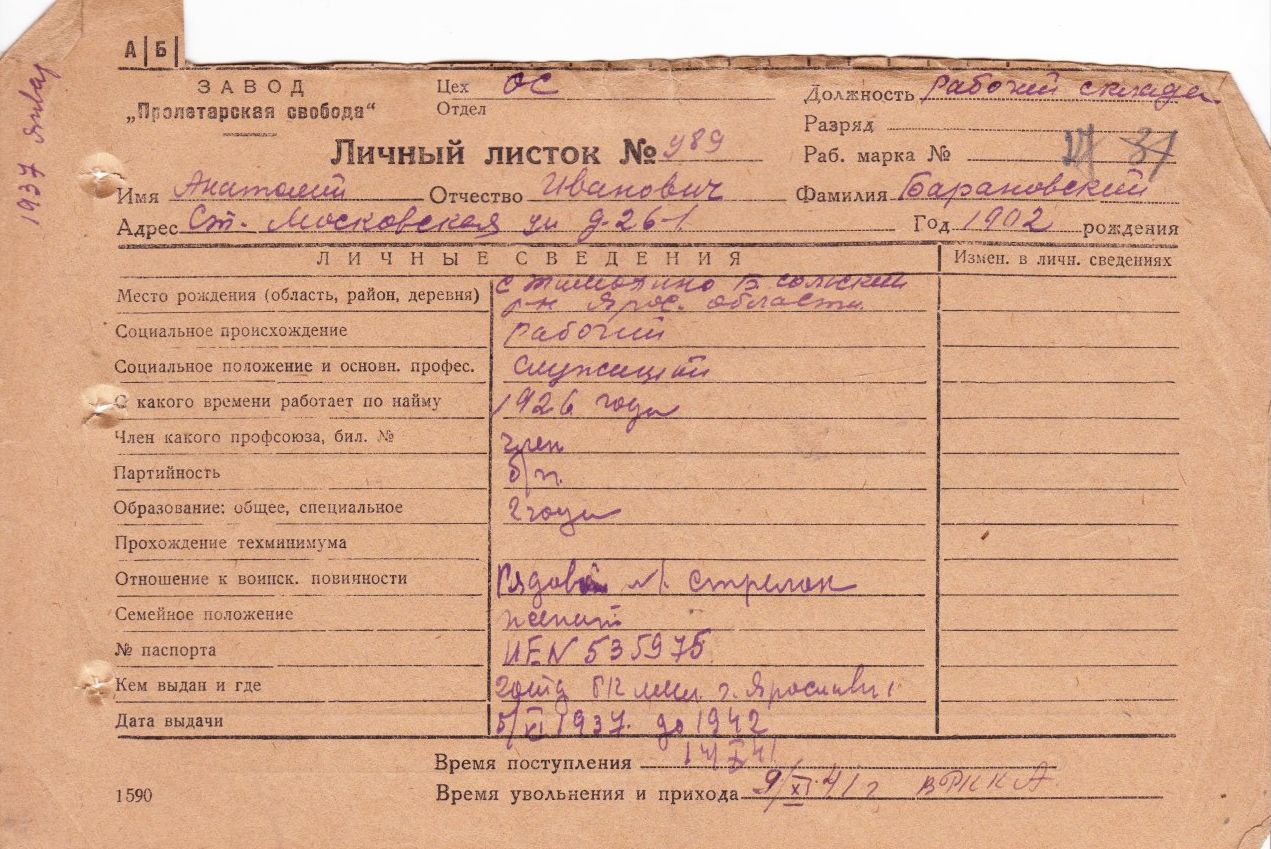 1937 январ
А|Б|
ЗАВОД
„Пролетарская свобода“
Цех ОС
Отдел
Должность рабочий склада
Разряд
Личный листок № 989
Раб. марка №
Имя Анатолий Отчество Иванович Фамилия Барановский
Адрес Ст. Московская ул д-26-1 Год 1902 рождения
ЛИЧНЫЕ СВЕДЕНИЯ
Измен. в личн. сведениях
Место рождения (область, район, деревня) с
р-н Яросл. области
Социальное происхождение рабочий
Социальное положение и основн. профес. служащий
С какого времени работает по найму 1926 года
Член какого профсоюза, бил. № член
Партийность б/п.
Образование: общее, специальное 2 года
Прохождение техминимума
Отношение к воинск. повинности Рядовой стрелок
Семейное положение женат
№ паспорта 535975
Кем выдан и где г. Ярославль
Дата выдачи 5/XI 1937. до 1942
Время поступления
Время увольнения и прихода 9/XI 41 г в РККА
1590